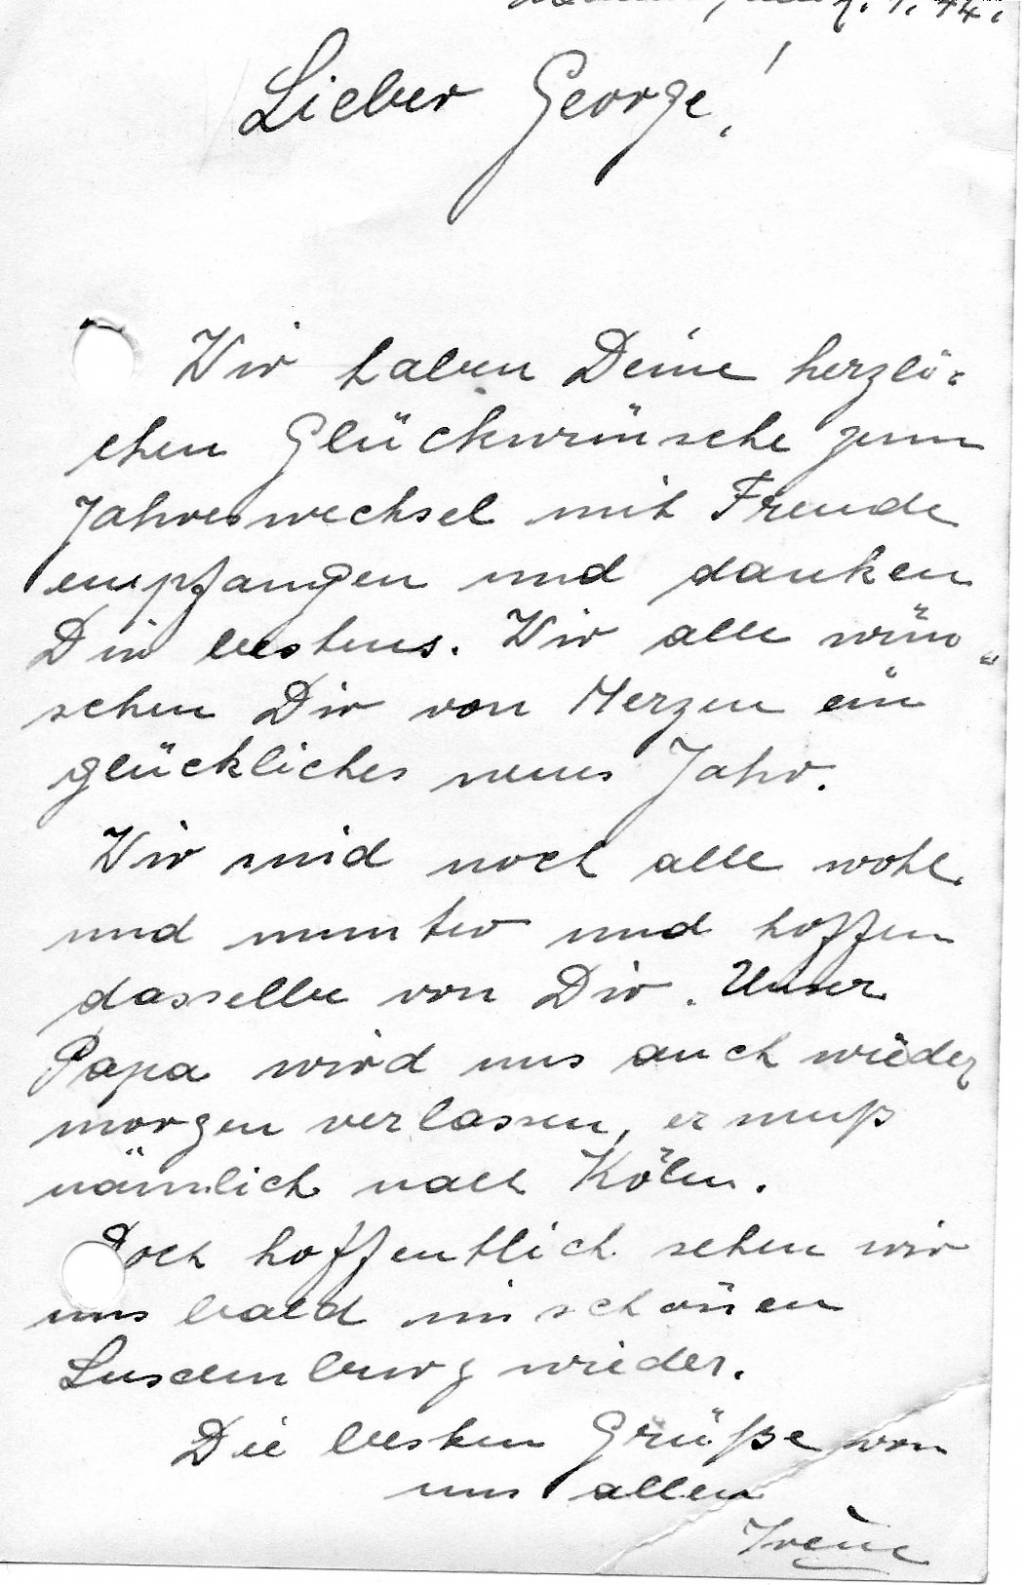 1.44.
Lieber George!
Wir haben Deine herzli=
chen Glückwünsche zum
Jahreswechsel mit Freude
empfangen und danken
Dir bestens. Wir alle wün=
schen Dir von Herzen ein
glückliches neues Jahr.
Wir sind noch alle wohl
und munter und hoffen
dasselbe von Dir. Unser
Papa wird uns auch wieder
morgen verlassen, er muß
nämlich nach Köln.
Doch hoffentlich sehen wir
uns bald im schönen
Luxemburg wieder.
Die besten Grüße von
uns allen
Irene